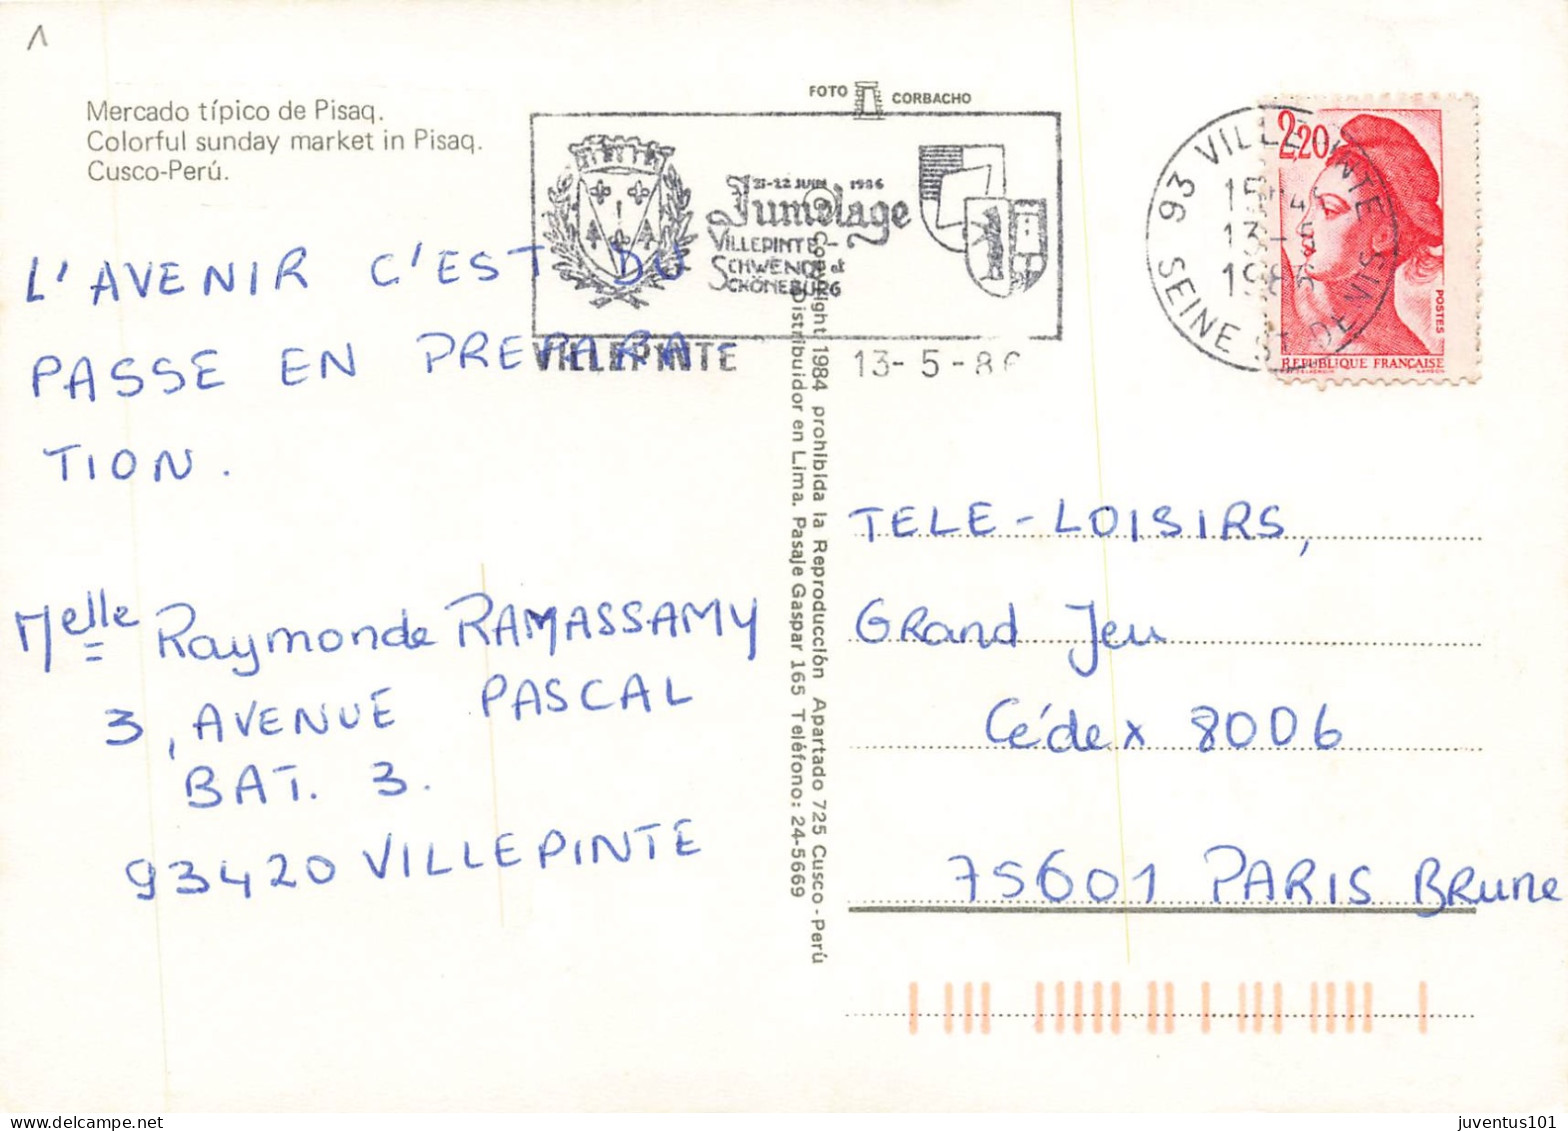 1
Mercado típico de Pisaq.
Colorful sunday market in Pisaq.
Cusco-Perú.
FOTO CORBACHO
21-22 JUIN 1986
Jumelage
VILLEPINTE-
SCHWENDI et
SCHÖNEBURG
VILLEPINTE 13-5-86
93 VILLEPINTE
15H45
13-5
1986
SEINE ST DENIS
2,20
POSTES
REPUBLIQUE FRANÇAISE
L'AVENIR C'EST DU
PASSE EN PREPARA
TION.
Melle Raymonde RAMASSAMY
3, AVENUE PASCAL
BAT. 3.
93420 VILLEPINTE
Copyright 1984 prohibida la Reproducción Apartado 725 Cusco-Perú
Distribuidor en Lima. Pasaje Gaspar 165 Teléfono: 24-5669
TELE-LOISIRS,
Grand Jeu
Cédex 8006
75601 PARIS Brune
juventus101